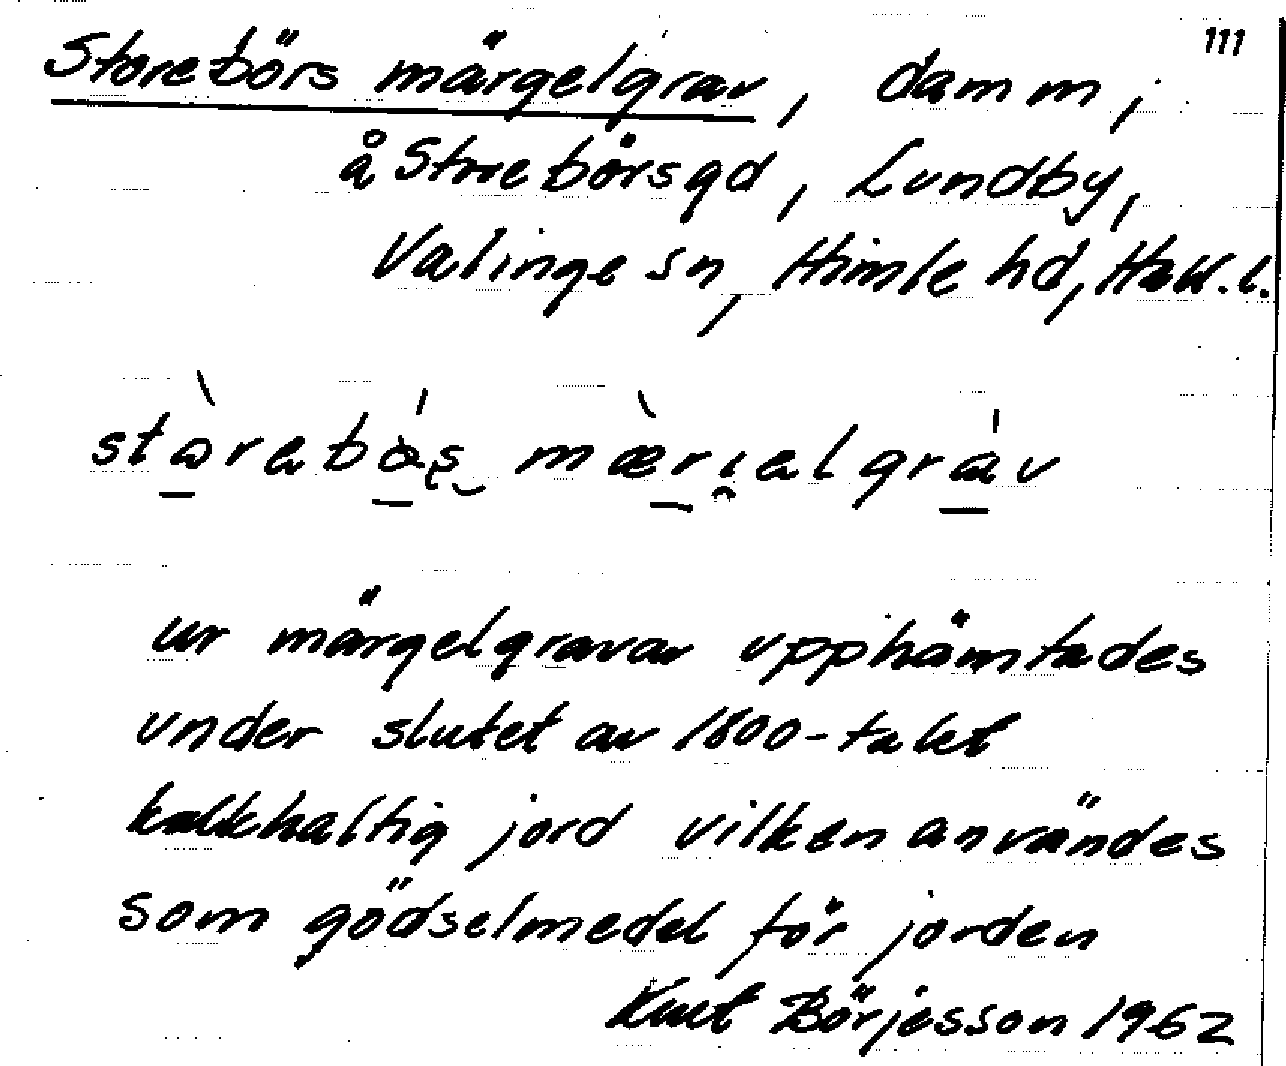 111
Storebörs märgelgrav, damm,
å Storebörsgd, Lundby,
Valinge sn, Himle hd, Hall. l.
ur märgelgravar upphämtades
under slutet av 1800-talet
kalkhaltig jord vilken användes
som gödselmedel för jorden
Kurt Börjesson 1962